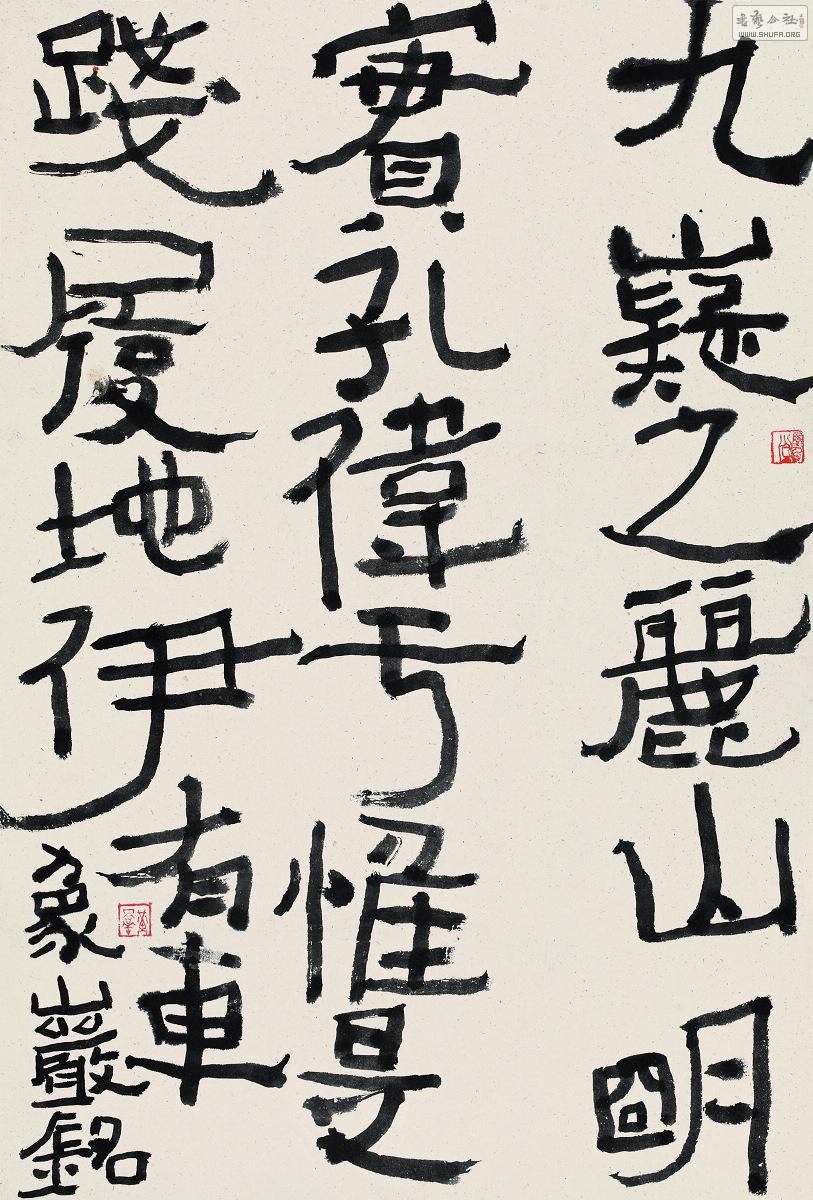 九嶷之麗山朙
實孔偉亏惟是
踐履地伊
有車
象巖銘
書藝公社
WWW.SHUFA.ORG